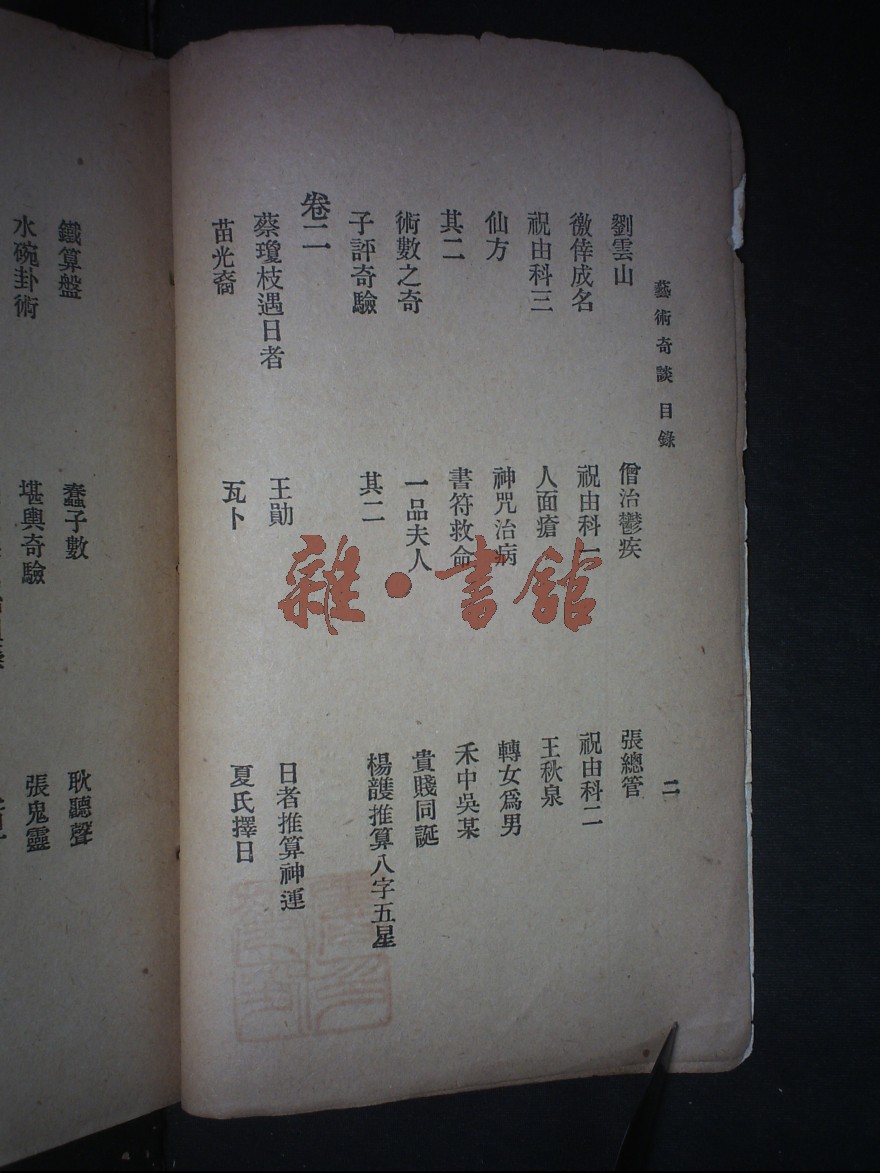 藝術奇談 目錄 二
劉雲山 僧治鬱疾 張總管
徼倖成名 祝由科一 祝由科二
祝由科三 人面瘡 王秋泉
仙方 神咒治病 轉女爲男
其二 書符救命 禾中吳某
術數之奇 一品夫人 貴賤同誕
子評奇驗 其二 楊護推算八字五星
卷二
蔡瓊枝遇日者 王勛 日者推算神運
苗光裔 瓦卜 夏氏擇日
鐵算盤 蠢子數 耿聽聲
水碗卦術 堪輿奇驗 張鬼靈
雜·書館